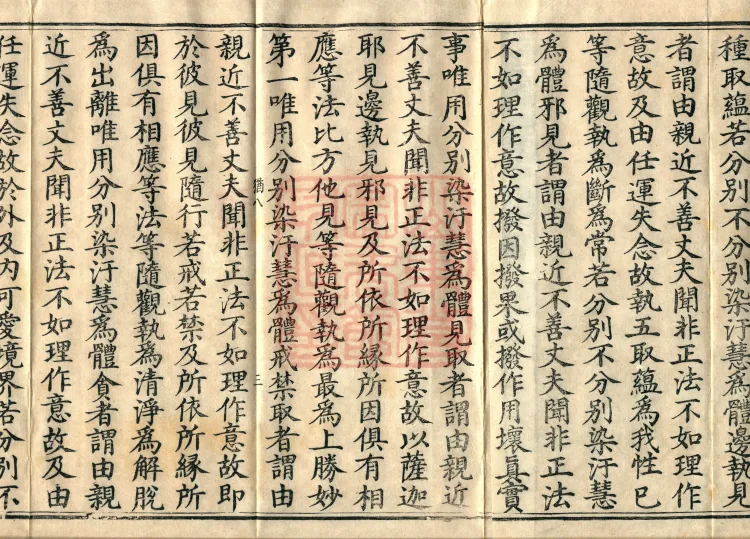 種取蘊若分別不分別染汙慧爲體邊執見
者謂由親近不善丈夫聞非正法不如理作
意故及由任運失念故執五取蘊爲我性已
等隨觀執爲斷爲常若分別不分別染汙慧
爲體邪見者謂由親近不善丈夫聞非正法
不如理作意故撥因撥果或撥作用壞真實
事唯用分別染汙慧爲體見取者謂由親近
不善丈夫聞非正法不如理作意故以薩迦
耶見邊執見邪見及所依所緣所因俱有相
應等法比方他見等隨觀執爲最爲上勝妙
第一唯用分別染汙慧爲體戒禁取者謂由
猶八
三
親近不善丈夫聞非正法不如理作意故即
於彼見彼見隨行若戒若禁及所依所緣所
因俱有相應等法等隨觀執爲清淨爲解脫
爲出離唯用分別染汙慧爲體貪者謂由親
近不善丈夫聞非正法不如理作意故及由
任運失念故於外及內可愛境界若分別不